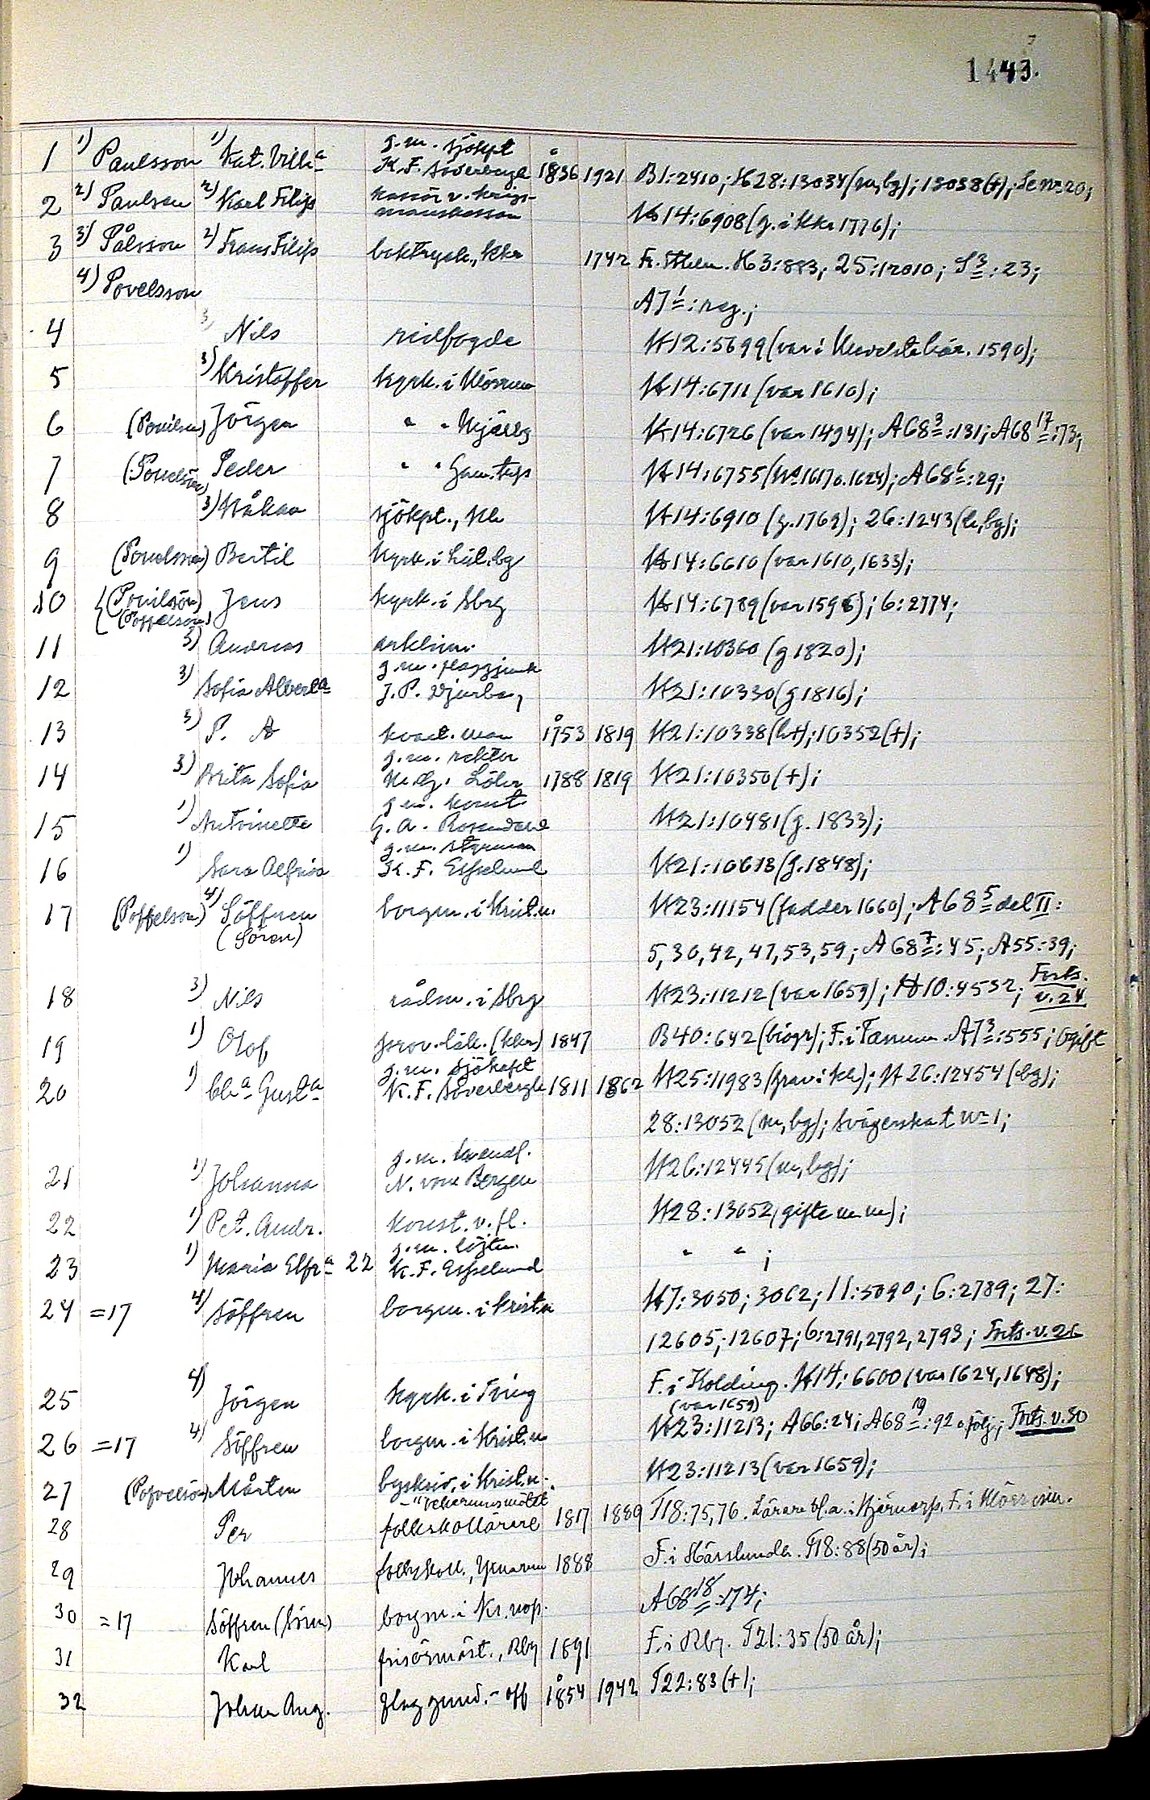 1443.
1 1) Paulsson 1) Kat. Vilh:a g.m. sjökpt K. F. Söderbergh å 1836 1921 B1:2410; H28:13034 (m, bg); 13038 (+); Se nr 20;
2 2) Paulson 2) Karl Filip kassör v. krigsmanskassan H14:6908 (g. i kkr 1776);
3 3) Pålsson 2) Frans Filip boktryck., Kkr 1742 Fr. Sthlm. H3:883; 25:12010; S3:23;
4) Povelsson A71:reg.;
4 3) Nils ridfogde H12:5699 (var i 1590);
5 3) Kristoffer kyrk. i Mörrum H14:6711 (var 1610);
6 (Pouilsen) Jörgen " " Mjälby H14:6726 (var 1494); A68 3:131; A68 17:73;
7 (Pouelsön) Peder " " Gam.torp H14:6755 (1617 o. 1624); A68 6:29;
8 3) Håkan sjökpt., Kh H14:6910 (g. 1769); 26:1243 (h, bg);
9 (Pouelsson) Bertil kyrk. i List.bg H14:6610 (var 1610, 1633);
10 (Pouilsön) (Poffelson) Jens kyrk. i Sbrg H14:6789 (var 1596); 6:2774;
11 3) Andreas H21:10360 (g 1820);
12 3) Sofia Albert:a g.m. flaggjunk J. P. Djurberg H21:10330 (g 1816);
13 3) P. A kvart.man å 1753 1819 H21:10338 (h+); 10352 (+);
14 3) Brita Sofia g.m. rektor Löhr 1788 1819 H21:10350 (+);
15 1) Antoinette g.m. konst. G. A. Rosendahl H21:10481 (g. 1833);
16 1) Sara Alfrida g.m. styrman K. F. Esselund H21:10613 (g. 1848);
17 (Poffelson) 4) Söffren (Sören) borgm. i Krist.n. H23:11154 (fadder 1660); A68 5 del II:
5, 30, 42, 47, 53, 59; A68 7:45; A55:39;
18 3) Nils rådm. i Sbrg H23:11212 (var 1659); H10:4532; Forts. v. 24
19 1) Olof prov.läk. (kkr) 1847 B40:642 (biogr); F. i Tannum. A73:555; Ogift
20 1) Ch:a Gust:a g.m. sjökapt K. F. Söderbergh 1811 1862 H25:11983 (grav i kh); H26:12454 (bg);
28:13052 (m, bg); Svägerska t nr 1;
21 1) Johanna g.m. handl. N. von Bergen H26:12445 (m, bg);
22 1) Pet. Andr. konst. v. fl. H28:13052 (gifte m m);
23 1) Maria Elfr:a 22 g.m. löjtn. K. F. Esselund " " ;
24 =17 4) Söffren borgm. i Krist.n H7:3050; 3062; 11:5090; 6:2789; 27:
12605; 12607; 6:2791, 2792, 2793; Forts. v. 26
25 4) Jörgen kyrk. i Tving F. i Kolding. H14:6600 (var 1624, 1648);
26 =17 4) Söffren borgm. i Krist.n (var 1659) H23:11213; A66:24; A68 19:92 o följ; Forts. v. 30
27 (Pofvelsön) Mårten byskriv. i Krist.n. H23:11213 (var 1659);
28 Per folkskollärare 1817 1889 T18:75, 76. Lärare bl.a. i Hjärnarp. F. i Mörrum.
29 Johannes folkskoll., 1888 F. i Härslunda. T18:88 (50 år);
30 =17 Söffren (Sören) borgm. i Kr.nop. A68 18:174;
31 Karl frisörmäst., Rby 1891 F. i Rby. T21:35 (50 år);
32 Johan Aug. flag.und.-off å 1854 1942 T22:83 (+);